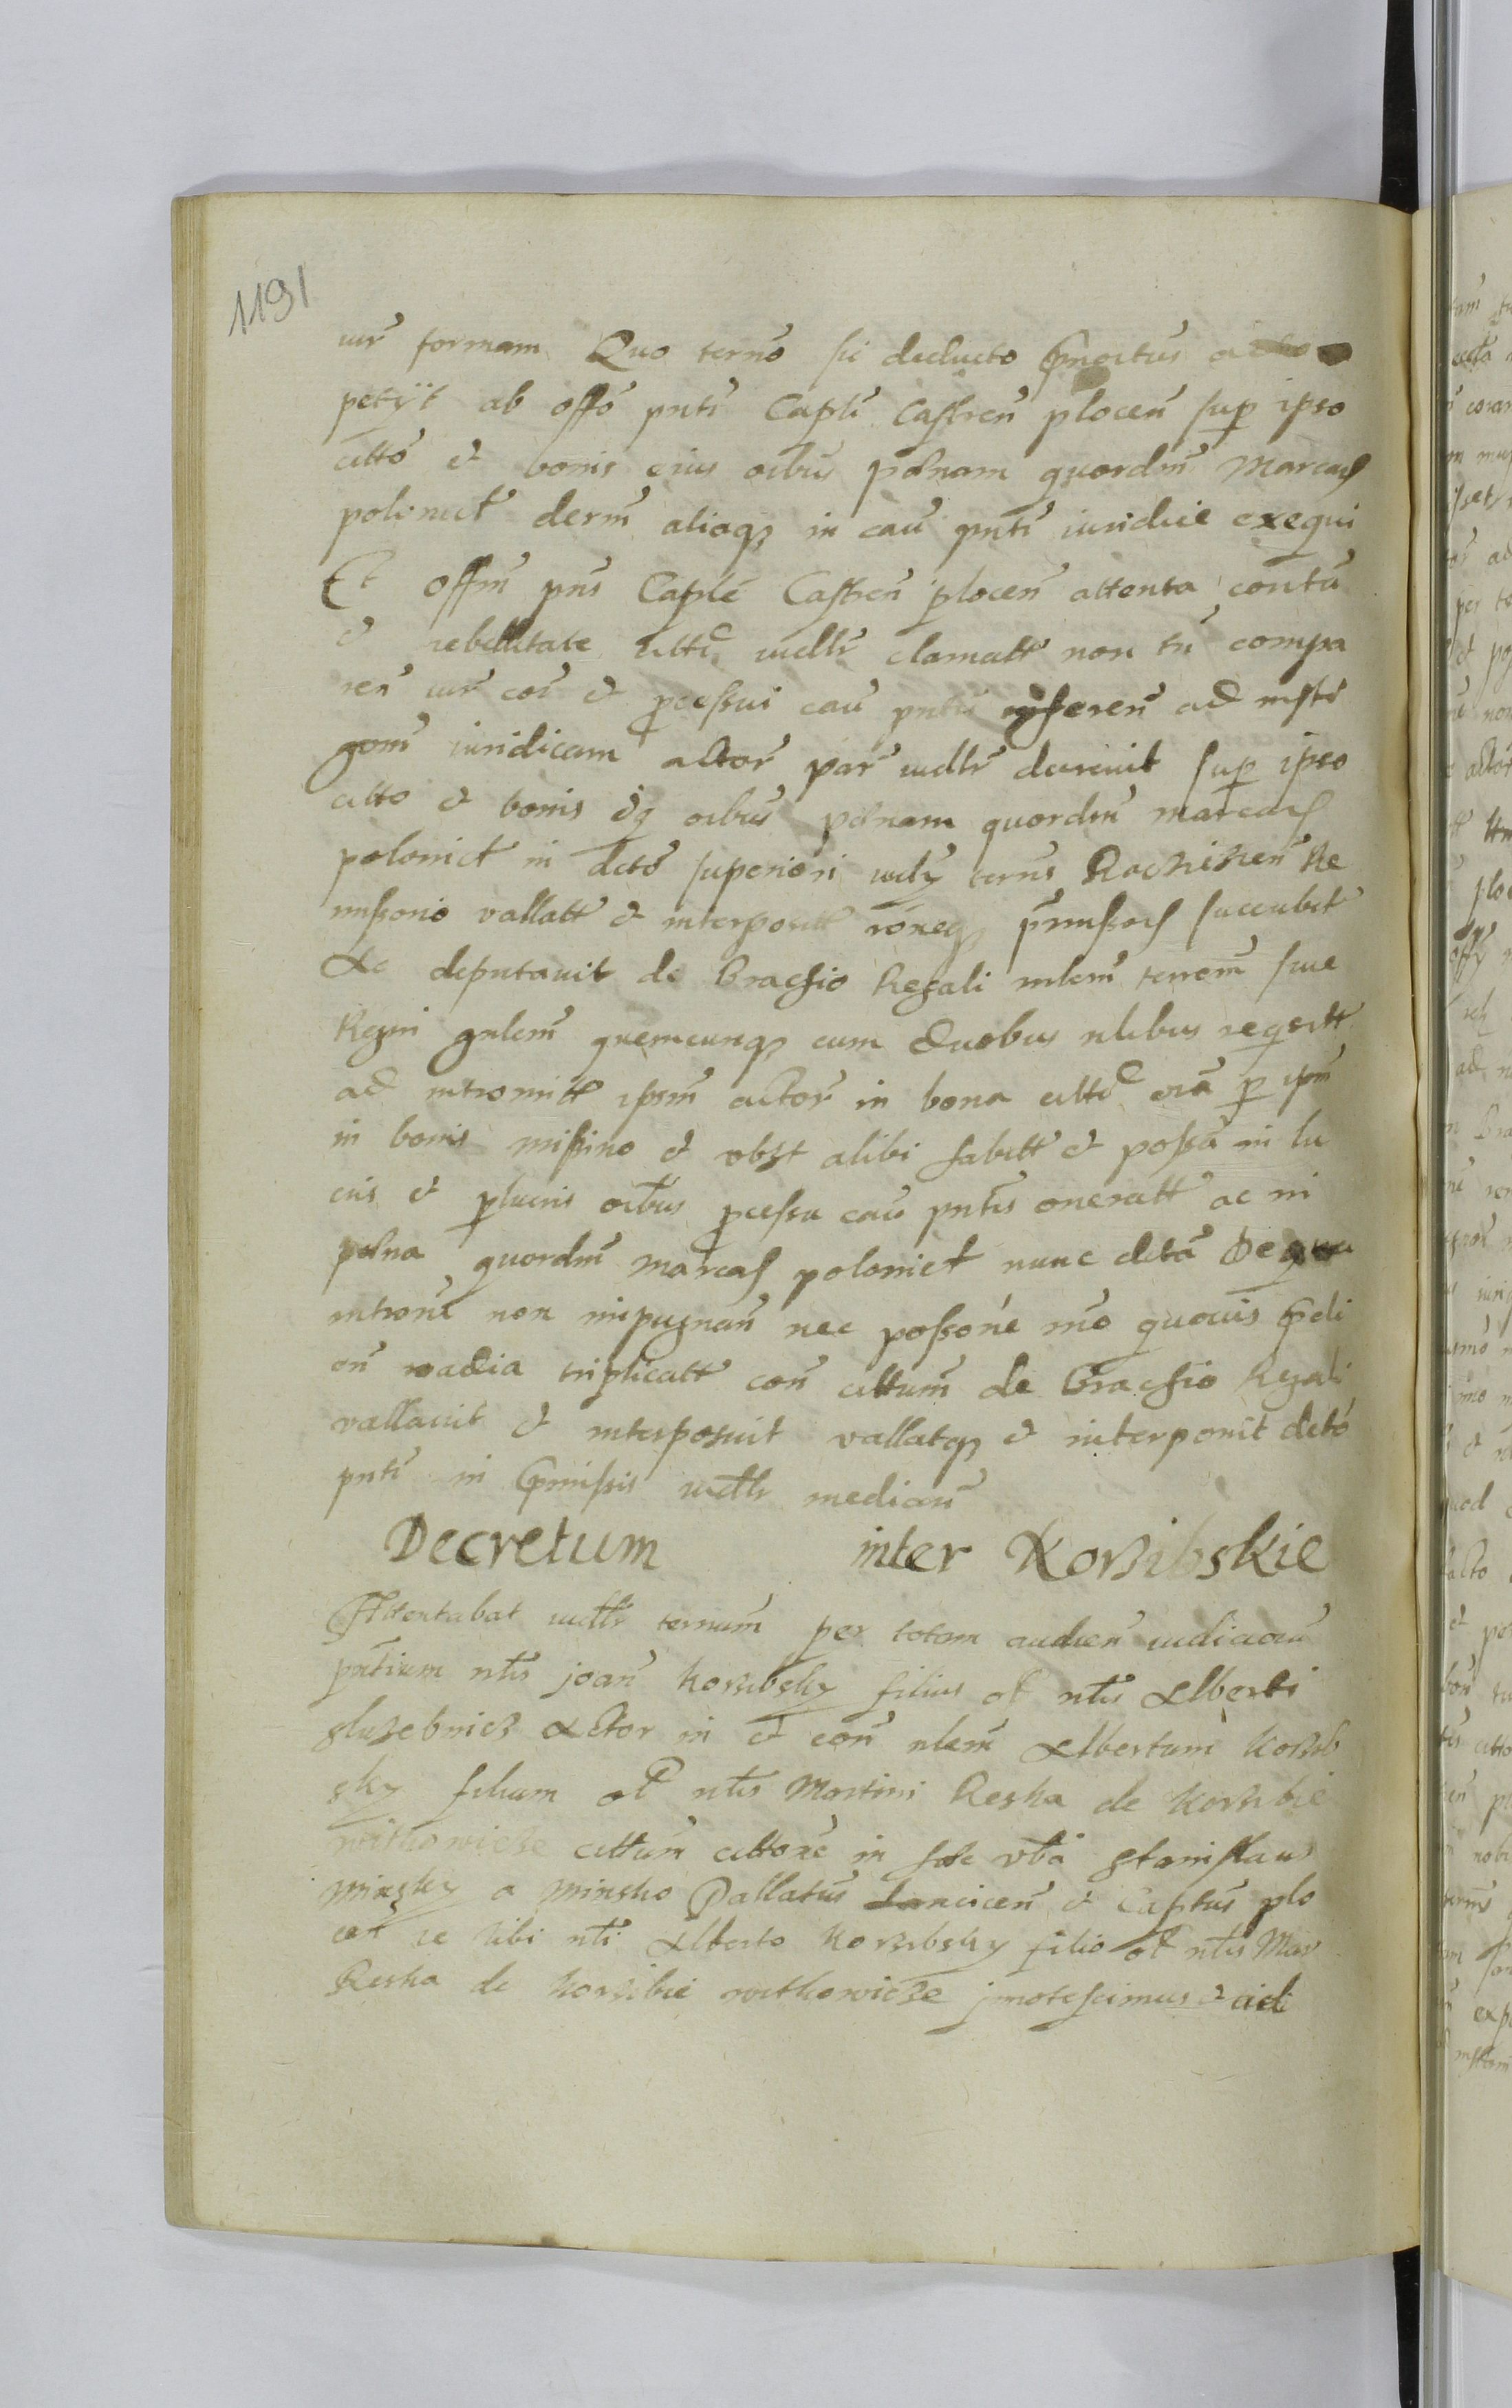 1191
iur̃ formam Quo terno sic deducto
petÿt ab offo pnti Capli Castren plocen sup ipso
citto et bonis eius oibus pœnam quordm Marcas
polonict derm aliaq in cau pnti iuridicie exequi
Et offm pns Caple Castren plocen attenta contu
et rebellitate citti iudlr clamatt non tn compa
ren iur coi et pcessui cau pntis ad insti
gom iuridicam actor par iudlr decreuit sup ipso
citto et bonis eiq oibus pœnam quordm marcas
polonict in deto superiori terns Raczizen Re
missorio vallatt et interposit roneq pmissors succubit
Ac deputauit de Brachio Regali mlem terrem siue
Regni gnlem quemcunq cum duobus nlibus reqsitt
ad intromitt ipsm actor in bona citti oia p ipm
in bonis missino et vbzt alibi habitt et possa in lu
cris et plucris oibus pcessu cau pntis oneratt ac in
pœna quordm marcas polonict nunc detta
introne non impugnan nec possone mo quouis
on vadia triplicatt con cittum de Brachio Regali
vallauit et interposuit vallatq et interponit deto
pnti in pmissis iudlr median
Decretum inter Korzibskie
Attentabat iudlr ternum per totam audien iudiciaru
pntium nlis joan Korzibsky filius ol nlis Alberti
sluzebnicz Actor in et con nlem Albertum Korzib
sky filium ol nlis Martini Reska de Korzibie
witkowicze cittum cittone in hec vba Stanislaus
Minsky a Minsko Pallatus Lancicen et Captus plo
cen tibi nli Alberto Korzibsky filio ol nlis Mar
Reska de Korzibie witkowicze jnnotescimus et